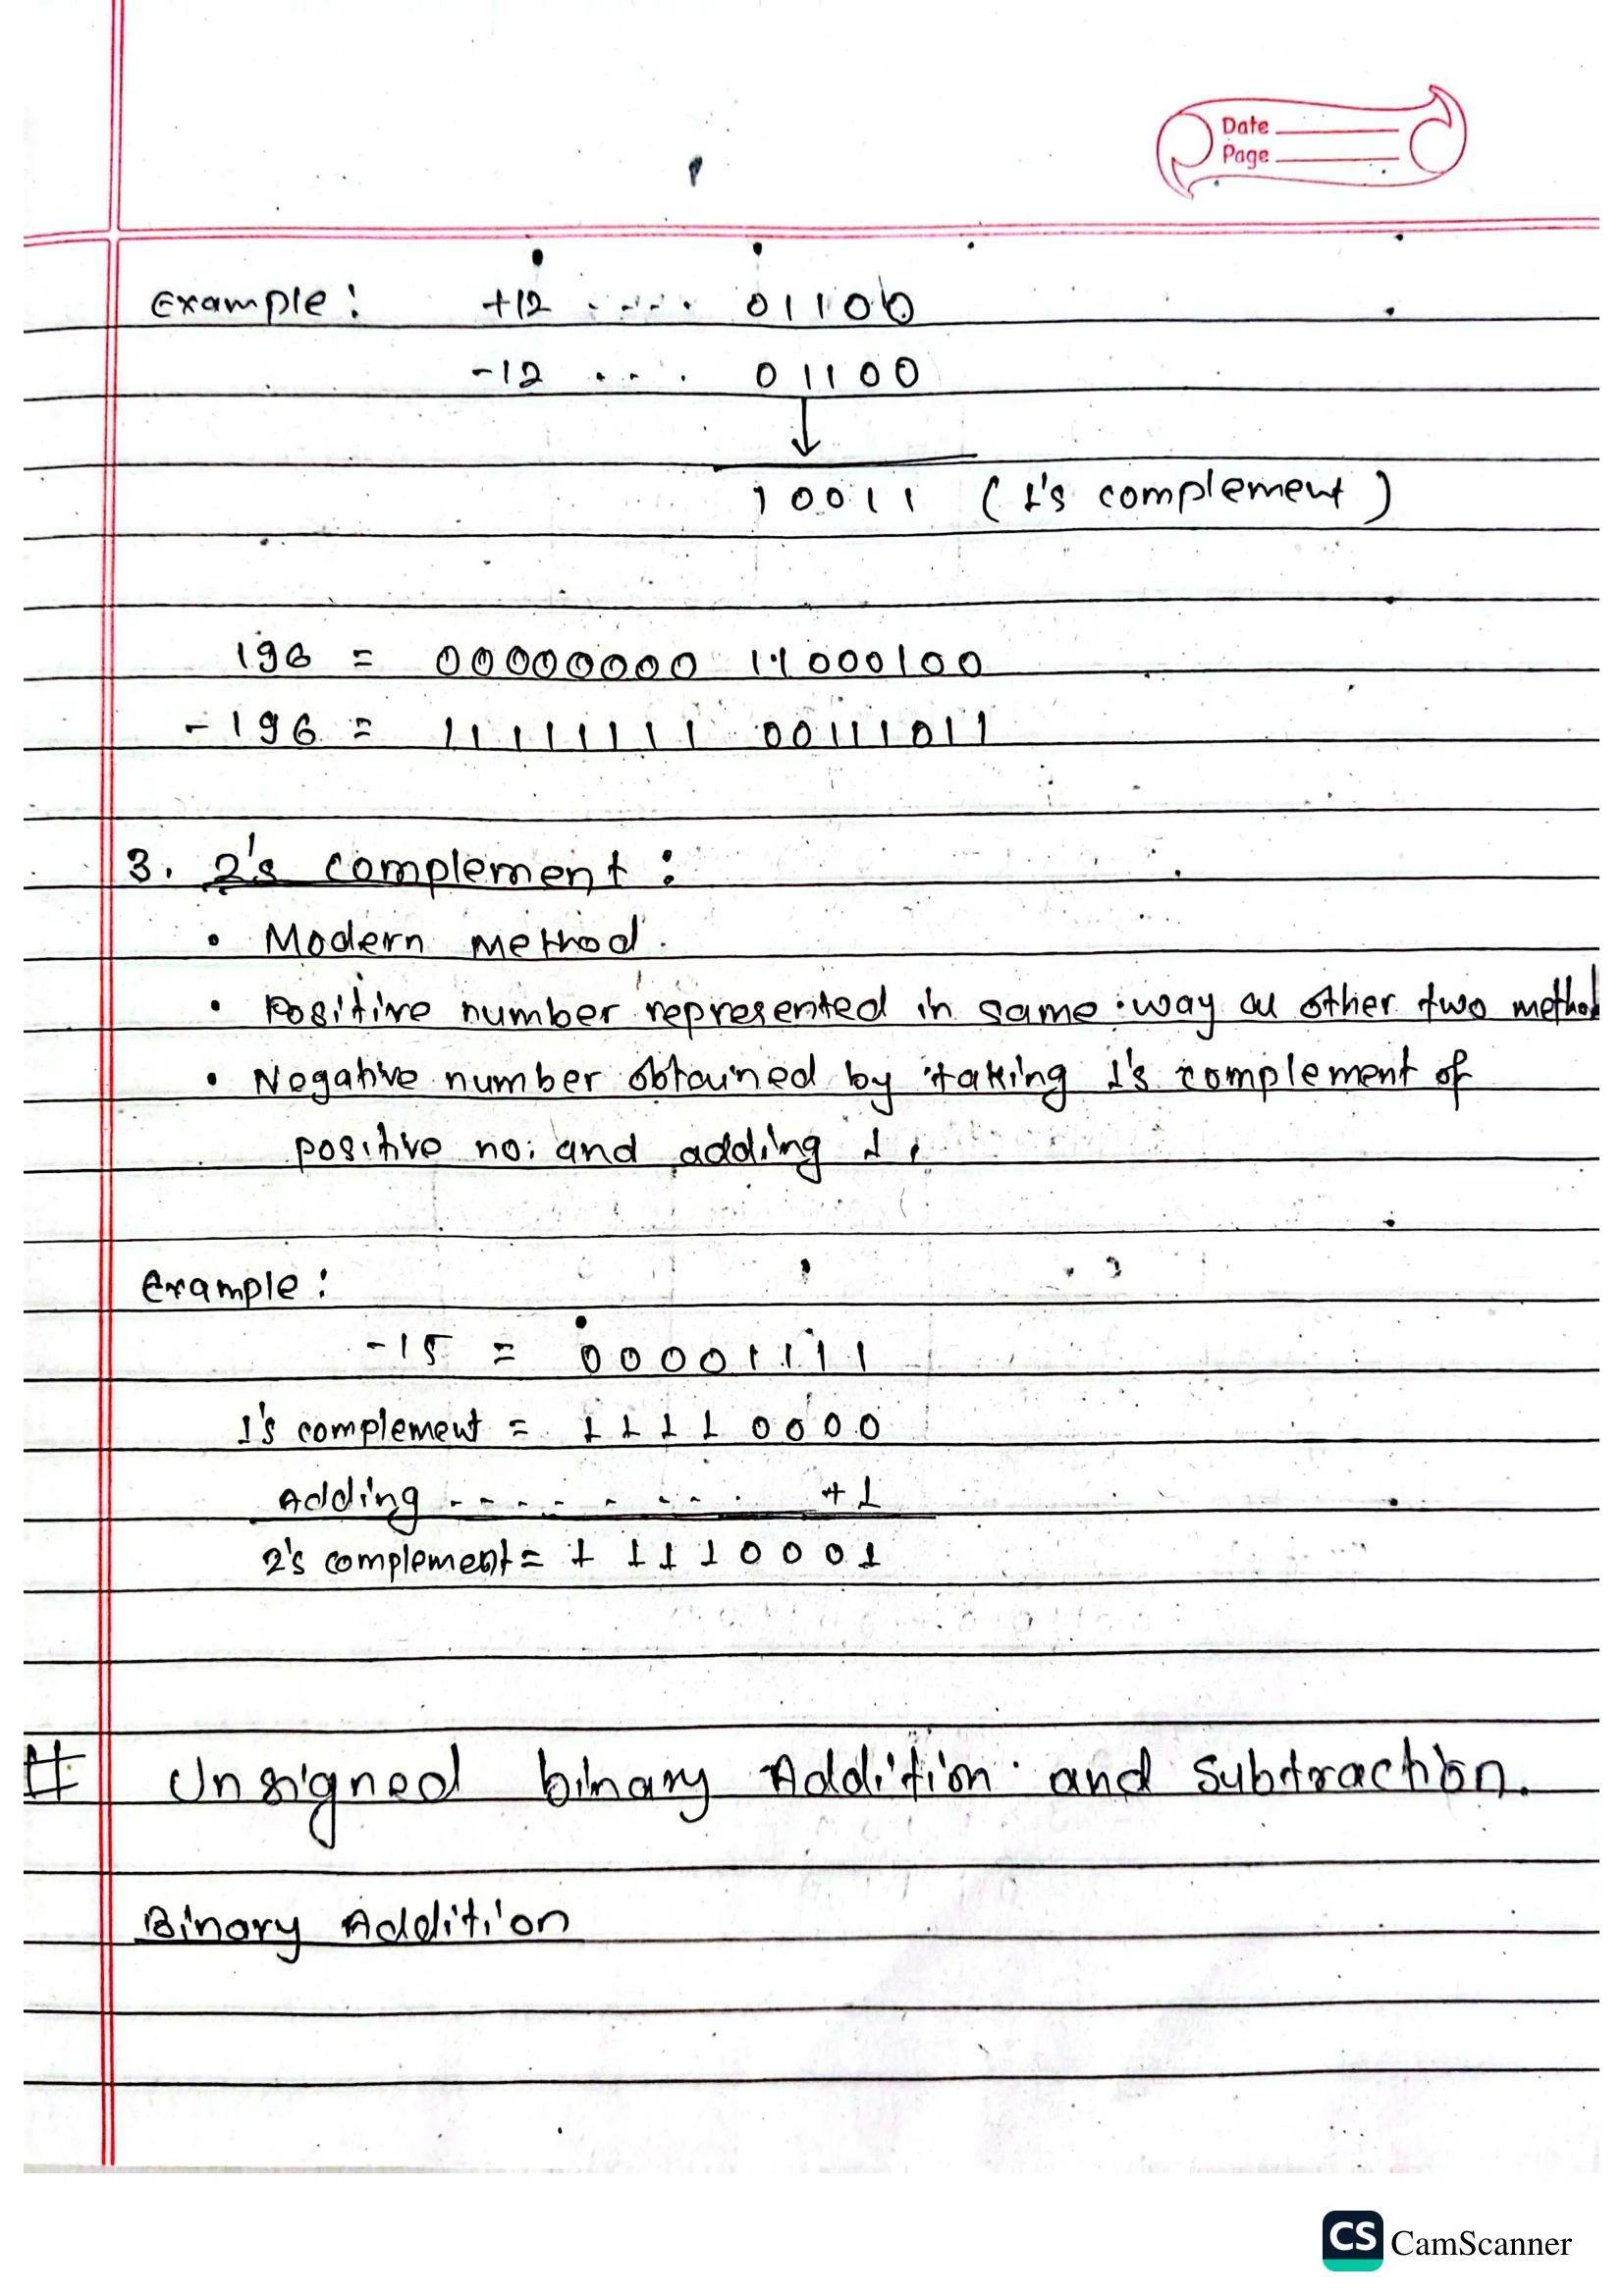 Date
Page
Example : +12 ..... 01100
-12 ... 01100
↓
10011 (1's complement)
196 = 00000000 11000100
-196 = 11111111 00111011
3. 2's complement :
• Modern Method.
• Positive number represented in same way as other two method
• Negative number obtained by taking 1's complement of
positive no. and adding 1.
Example :
-15 = 00001111
1's complement = 11110000
Adding - - - - - - - - +1
2's complement = 11110001
# Unsigned binary Addition and Subtraction.
Binary Addition
CS CamScanner